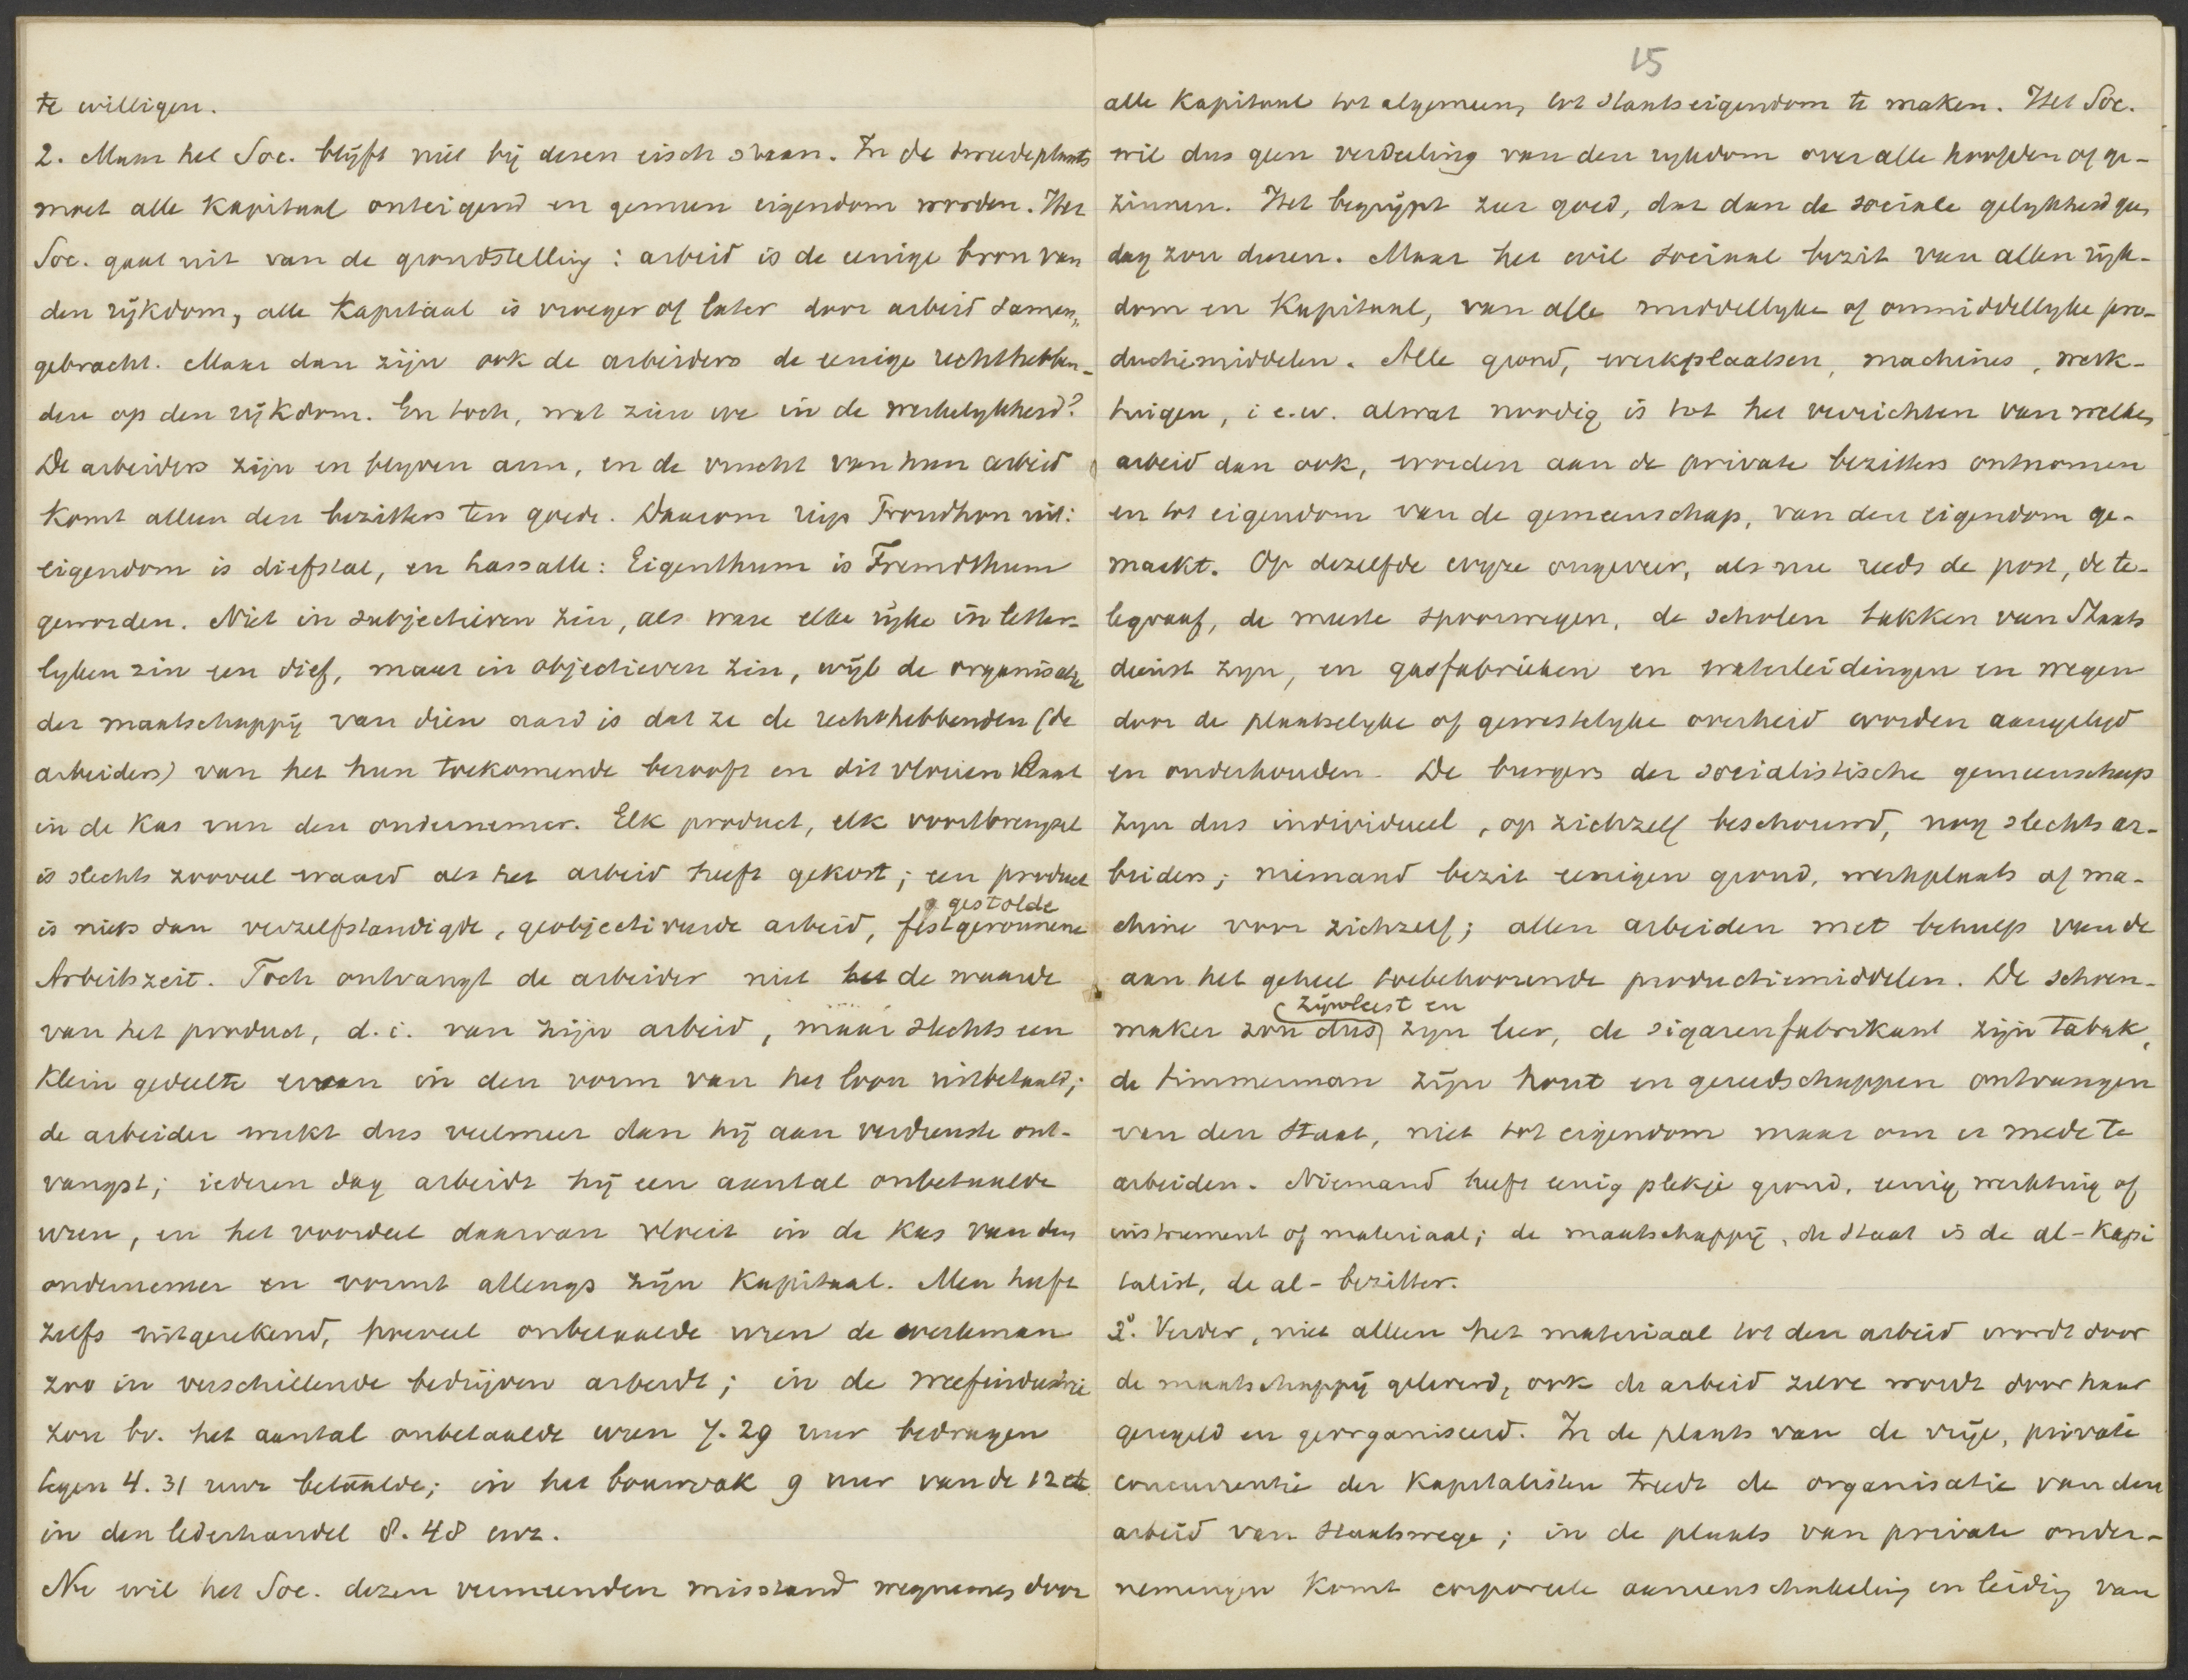 te willigen.
2. Maar het Soc. blijft niet bij dezen eisch staan. In de tweede plaats
moet alle Kapitaal onteigend en gemeen eigendom worden. Het
Soc. gaat uit van de grondstelling: arbeid is de eenige bron van
den rijkdom, alle Kapitaal is vroeger of later door arbeid samen„
gebracht. Maar dan zijn ook de arbeiders de eenige rechthebben-
den op den rijkdom. En toch, wat zien we in de werkelykheid?
De arbeiders zijn en blyven arm, en de vrucht van hun arbeid
komt alleen den bezitters ten goede. Daarom riep Proudhon uit:
eigendom is diefstal, en Lassalle: Eigenthum is Fremdthum
geworden. Niet in subjectieven zin, als ware elke rijke in letter-
lyken zin een dief, maar in objectieven zin, wijl de organisatie
der maatschappij van dien aard is dat ze de rechthebbenden (de
arbeiders) van het hun toekomende berooft en dit vloeien laat
in de Kas van den ondernemer. Elk product, elk voortbrengsel
is slechts zooveel waard als het arbeid heeft gekost; een product
is niets dan verzelfstandigde, geobjectiveerde arbeid, festgeronnene
gestolde
Arbeitszeit. Toch ontvangt de arbeider niet het de waarde
van het product, d.i. van zijn arbeid, maar slechts een
klein gedeelte ervan in den vorm van het loon uitbetaald;
de arbeider werkt dus veelmeer dan hij aan verdienste ont-
vangst; iederen dag arbeidt hij een aantal onbetaalde
uren, en het voordeel daarvan vloeit in de Kas van den
ondernemer en vormt allengs zijn Kapitaal. Men heeft
zelfs uitgerekend, hoeveel onbetaalde uren de werkman
zoo in verschillende bedrijven arbeidt; in de weefindustrie
zou bv. het aantal onbetaalde uren 7.29 uur bedragen
tegen 4.31 uur betaalde; in het bouwvak 9 uur van de 12
in den lederhandel 8.48 enz.
Nu wil het Soc. dezen vermeenden misstand wegnemen door
15
alle Kapitaal tot algemeen, tot Staatseigendom te maken. Het Soc.
wil dus geen verdeeling van den rykdom over alle hoofden of ge-
zinnen. Het begrijpt zeer goed, dat dan de sociale gelykheid geen
dag zou duren. Maar het wil sociaal bezit van allen rijk-
dom en Kapitaal, van alle middellyke of onmiddellyke pro-
ductiemiddelen. Alle grond, werkplaatsen, machines, werk-
tuigen, i e.w. alwat noodig is tot het verrichten van welken
arbeid dan ook, worden aan de private bezitters ontnomen
en tot eigendom van de gemeenschap, van den eigendom ge-
maakt. Op dezelfde wyze ongeveer, als nu reeds de post, de te-
legraaf, de meeste spoorwegen, de scholen takken van Staats
dienst zyn, en gasfabrieken en waterleidingen en wegen
door de plaatselyke of gewestelyke overheid worden aangelegd
en onderhouden. De burgers der socialistische gemeenschap
zyn dus individueel, op zichzelf beschouwd, nog slechts ar-
beiders; niemand bezit eenigen grond, werkplaats of ma-
chine voor zichzelf; allen arbeiden met behulp van de
aan het geheel toebehoorende productiemiddelen. De schoen-
zijn leest en
maker zou dus zyn leer, de sigarenfabrikant zijn tabak,
de timmerman zijn hout en gereedschappen ontvangen
van den Staat, niet tot eigendom maar om er mede te
arbeiden. Niemand heeft eenig plekje grond, eenig werktuig of
instrument of materiaal; de maatschappij, de Staat is de al-Kapi
talist, de al-bezitter.
3°. Verder, niet alleen het materiaal tot den arbeid wordt door
de maatschappij geleverd, ook de arbeid zelve wordt door haar
geregeld en georganiseerd. In de plaats van de vrije, private
concurrentie der Kapitalisten treedt de organisatie van den
arbeid van Staatswege; in de plaats van private onder-
nemingen komt corporeele aaneenschakeling en leiding van